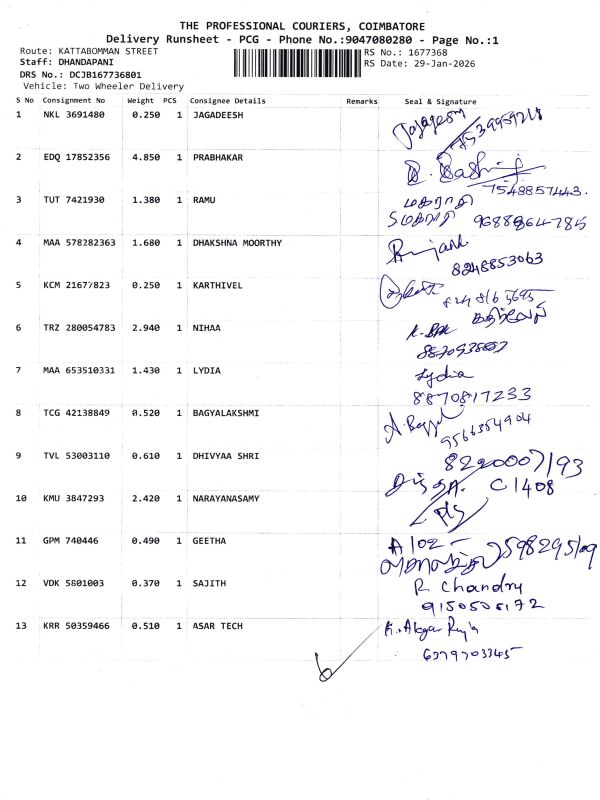 THE PROFESSIONAL COURIERS, COIMBATORE
Delivery Runsheet - PCG - Phone No.:9047080280 - Page No.:1
Route: KATTABOMMAN STREET
RS No.: 1677368
Staff: DHANDAPANI
RS Date: 29-Jan-2026
DRS No.: DCJB167736801
Vehicle: Two Wheeler Delivery
S No Consignment No Weight PCS Consignee Details Remarks Seal & Signature
1 NKL 3691480 0.250 1 JAGADEESH
2 EDQ 17852356 4.850 1 PRABHAKAR
7548857443.
3 TUT 7421930 1.380 1 RAMU
9688864785
4 MAA 578282363 1.680 1 DHAKSHNA MOORTHY
8248853063
5 KCM 21677823 0.250 1 KARTHIVEL
6 TRZ 280054783 2.940 1 NIHAA
7 MAA 653510331 1.430 1 LYDIA
Lydia
8870817233
8 TCG 42138849 0.520 1 BAGYALAKSHMI
9566354904
9 TVL 53003110 0.610 1 DHIVYAA SHRI
8220007193
C1408
10 KMU 3847293 2.420 1 NARAYANASAMY
11 GPM 740446 0.490 1 GEETHA
A102 -
12 VDK 5801003 0.370 1 SAJITH
R. Chandru
9150505172
13 KRR 50359466 0.510 1 ASAR TECH
6379703345